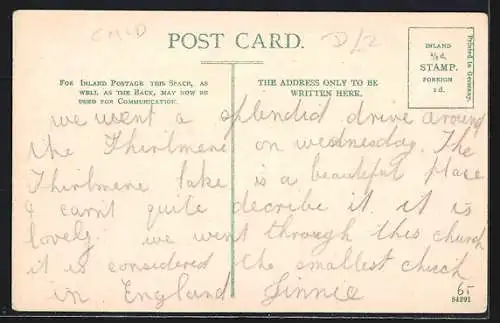 CMLD
D/2
POST CARD.
FOR INLAND POSTAGE THIS SPACE, AS
WELL AS THE BACK, MAY NOW BE
USED FOR COMMUNICATION.
THE ADDRESS ONLY TO BE
WRITTEN HERE.
INLAND
½d.
STAMP.
FOREIGN
1d.
Printed in Germany.
we went a splendid drive around
the Thirlmene on wednesday. The
Thirlmene lake is a beautiful place
I carn't quite decribe it it is
lovely we went through this church
it is considered the smallest chuch
in England Jinnie
6-
84991